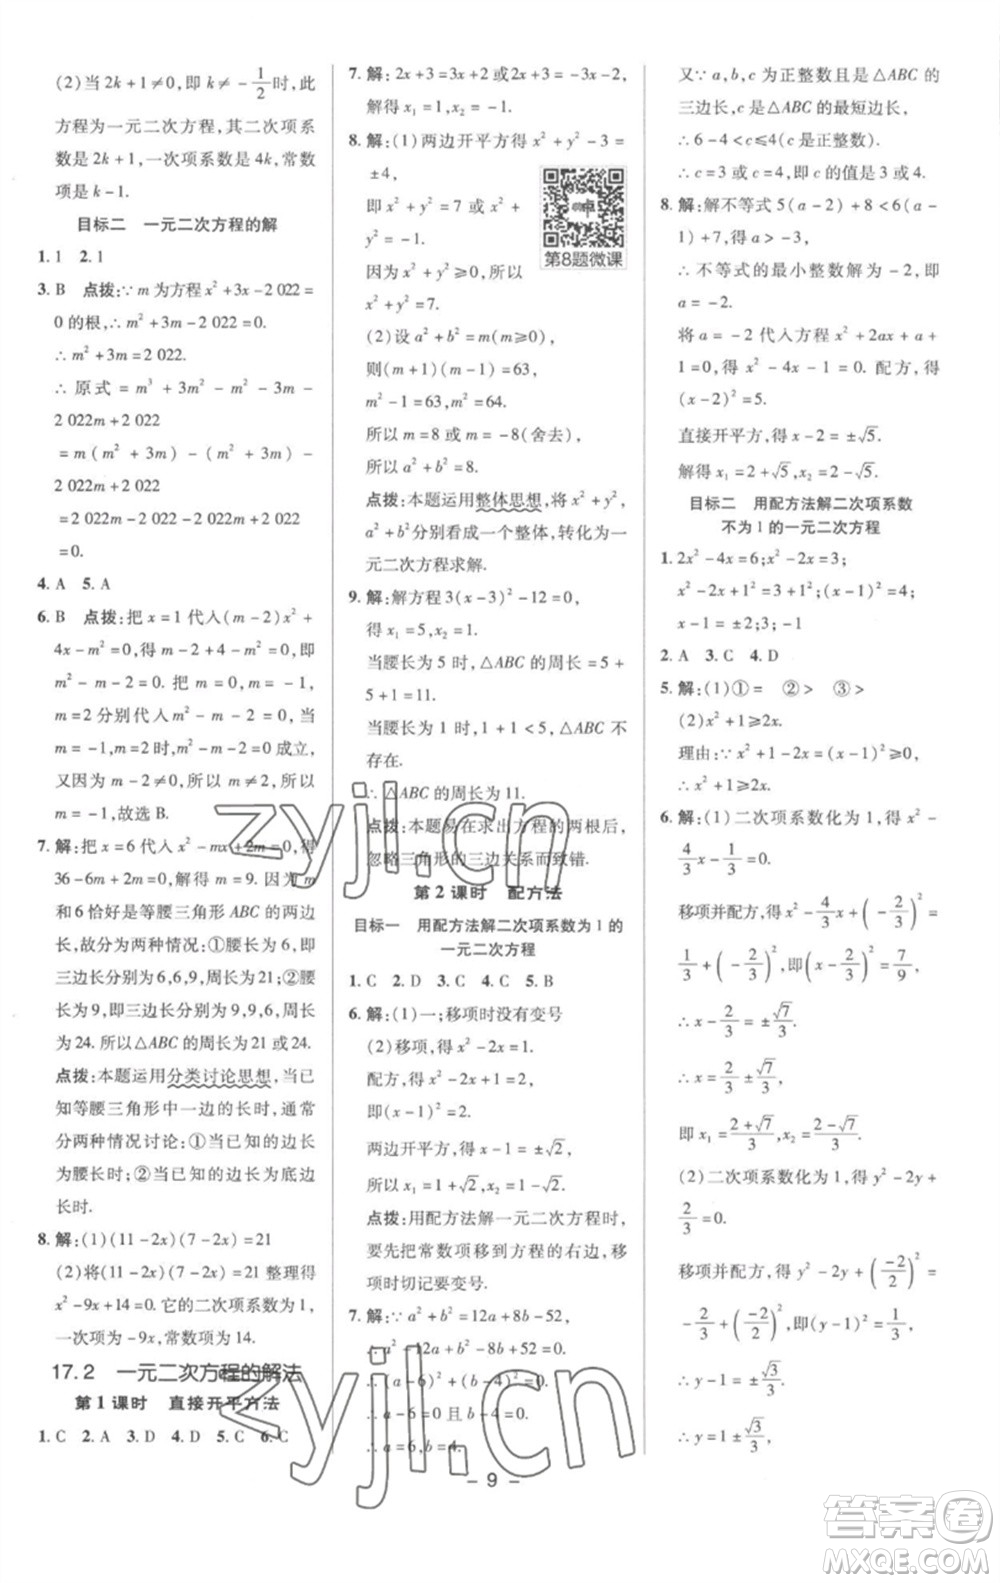 (2)当 2k+1≠0,即 k≠-1/2时,此
方程为一元二次方程,其二次项系
数是 2k+1,一次项系数是 4k,常数
项是 k-1.
目标二 一元二次方程的解
1. 1 2. 1
3. B 点拨:∵m 为方程 x²+3x-2 022=
0 的根,∴m²+3m-2 022=0.
∴m²+3m=2 022.
∴原式=m³+3m²-m²-3m-
2 022m+2 022
=m(m²+3m)-(m²+3m)-
2 022m+2 022
=2 022m-2 022-2 022m+2 022
=0.
4. A 5. A
6. B 点拨:把 x=1 代入(m-2)x²+
4x-m²=0,得 m-2+4-m²=0,即
m²-m-2=0. 把 m=2,m=-1,
m=2 分别代入 m²-m-2=0,当
m=-1,m=2时,m²-m-2=0成立,
又因为 m-2≠0,所以 m≠2,所以
m=-1,故选 B.
7. 解:把 x=6 代入 x²-mx+2m=0,得
36-6m+2m=0,解得 m=9. 因为 m
和 6 恰好是等腰三角形 ABC 的两边
长,故分为两种情况:①腰长为 6,即
三边长分别为 6,6,9,周长为 21;②腰
长为 9,即三边长分别为 9,9,6,周长
为 24. 所以△ABC 的周长为 21 或 24.
点拨:本题运用分类讨论思想,当已
知等腰三角形中一边的长时,通常
分两种情况讨论:①当已知的边长
为腰长时;②当已知的边长为底边
长时.
8. 解:(1)(11-2x)(7-2x)=21
(2)将(11-2x)(7-2x)=21 整理得
x²-9x+14=0. 它的二次项系数为 1,
一次项为-9x,常数项为 14.
17.2 一元二次方程的解法
第 1 课时 直接开平方法
1. C 2. A 3. D 4. D 5. C 6. C
7. 解:2x+3=3x+2或2x+3=-3x-2,
解得 x₁=1,x₂=-1.
8. 解:(1)两边开平方得 x²+y²-3=
±4,
即 x²+y²=7 或 x²+
y²=-1.
因为 x²+y²≥0,所以
x²+y²=7.
第8题微课
(2)设 a²+b²=m(m≥0),
则(m+1)(m-1)=63,
m²-1=63,m²=64.
所以 m=8 或 m=-8(舍去),
所以 a²+b²=8.
点拨:本题运用整体思想,将 x²+y²,
a²+b²分别看成一个整体,转化为一
元二次方程求解.
9. 解:解方程 3(x-3)²-12=0,
得 x₁=5,x₂=1.
当腰长为 5 时,△ABC 的周长为 5+
5+1=11.
当腰长为 1 时,1+1<5,△ABC 不
存在.
∴△ABC 的周长为 11.
点拨:本题易在求出方程的两根后,
忽略三角形的三边关系而致错.
第 2 课时 配方法
目标一 用配方法解二次项系数为 1 的
一元二次方程
1. C 2. D 3. C 4. C 5. B
6. 解:(1)一;移项时没有变号
(2)移项,得 x²-2x=1.
配方,得 x²-2x+1=2,
即(x-1)²=2.
两边开平方,得 x-1=±√2.
所以 x₁=1+√2,x₂=1-√2.
点拨:用配方法解一元二次方程时,
要先把常数项移到方程的右边,移
项时切记要变号.
7. 解:∵a²+b²=12a+8b-52,
∴a²-12a+b²-8b+52=0.
∴(a-6)²+(b-4)²=0.
∴a-6=0 且 b-4=0.
∴a=6,b=4.
又∵a,b,c 为正整数且是△ABC 的
三边长,c 是△ABC 的最短边长,
∴6-4<c≤4(c 是正整数).
∴c=3 或 c=4,即 c 的值是 3 或 4.
8. 解:解不等式 5(a-2)+8<6(a-
1)+7,得 a>-3.
∴不等式的最小整数解为 a=-2,即
a=-2.
将 a=-2 代入方程 x²+2ax+a+
1=0,得 x²-4x-1=0. 配方,得
(x-2)²=5.
直接开平方,得 x-2=±√5.
解得 x₁=2+√5,x₂=2-√5.
目标二 用配方法解二次项系数
不为 1 的一元二次方程
1. 2x²-4x=6;x²-2x=3;
x²-2x+1²=3+1²;(x-1)²=4;
x-1=±2;3;-1
2. A 3. C 4. D
5. 解:(1)①= ②> ③>
(2)x²+1≥2x.
理由:∵x²+1-2x=(x-1)²≥0,
∴x²+1≥2x.
6. 解:(1)二次项系数化为 1,得 x²-
4/3x-1/3=0.
移项并配方,得 x²-4/3x+(-2/3)²=
1/3+(-2/3)²,即(x-2/3)²=7/9,
∴x-2/3=±√7/3.
∴x=2/3±√7/3,
即 x₁=(2+√7)/3,x₂=(2-√7)/3.
(2)二次项系数化为 1,得 y²-2y+
2/3=0.
移项并配方,得 y²-2y+(-2/2)²=
-2/3+(-2/2)²,即(y-1)²=1/3,
∴y-1=±√3/3,
- 9 -
zyjl.cn
zyjl.cn
答案圈
MXQE.COM